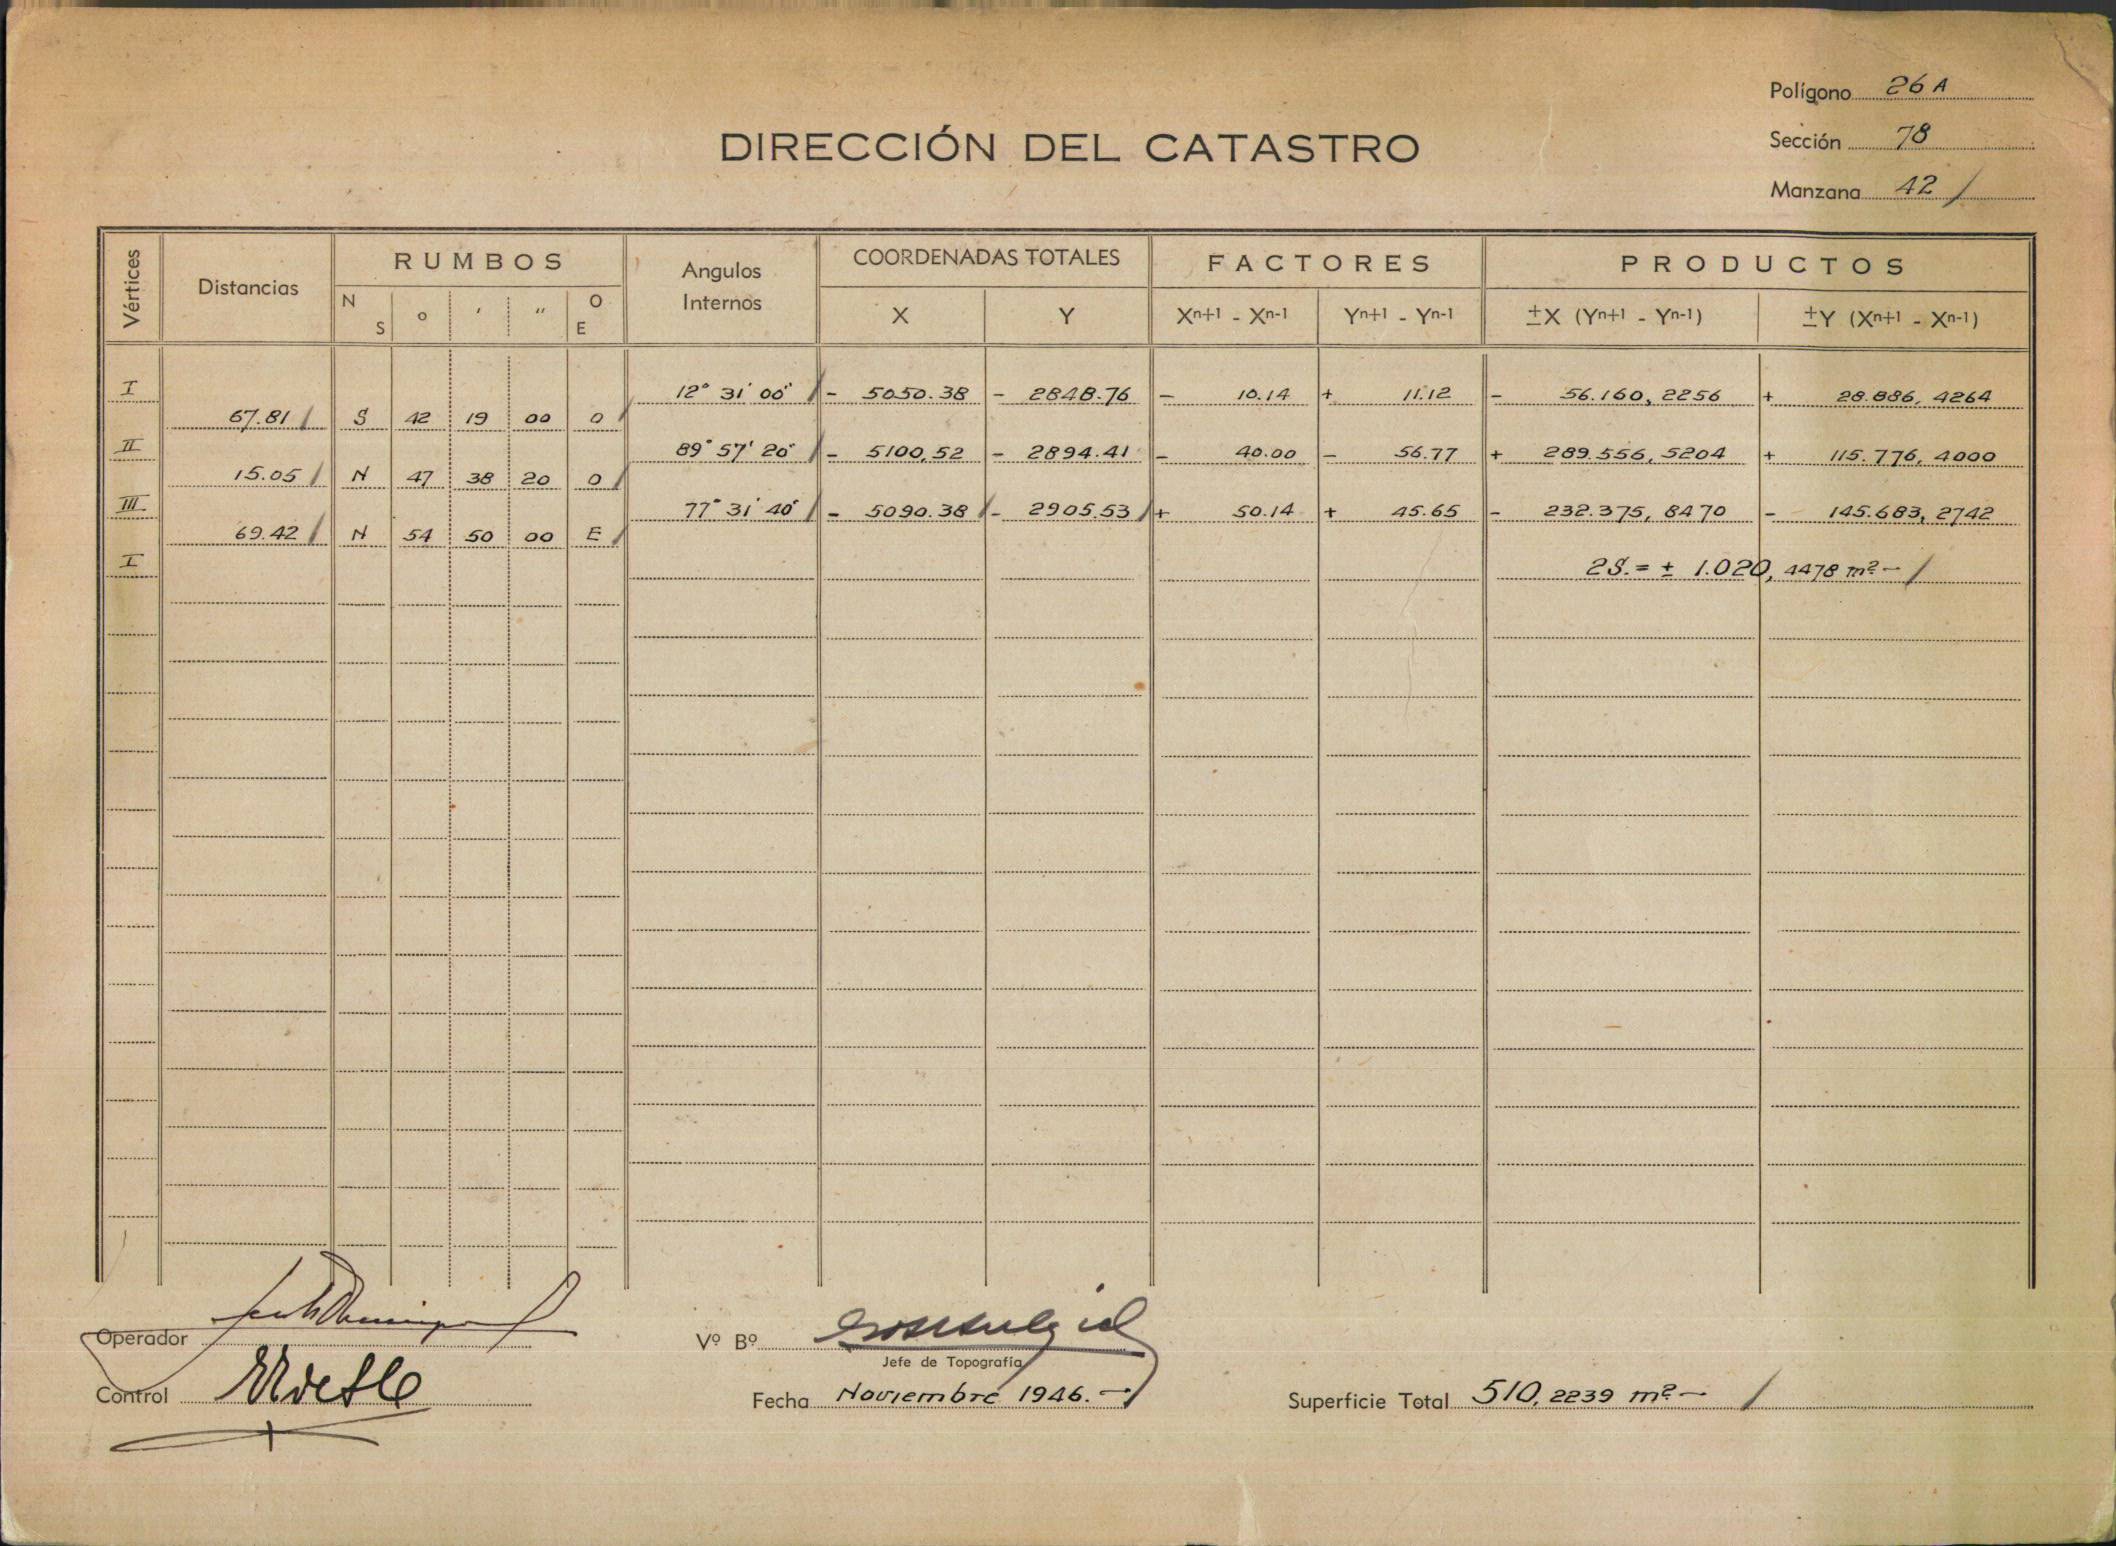 Polígono 26 A
DIRECCIÓN DEL CATASTRO
Sección 78
Manzana 42 /
Vértices Distancias RUMBOS Angulos Internos COORDENADAS TOTALES FACTORES PRODUCTOS
N S o ' " O E X Y Xn+1 - Xn-1 Yn+1 - Yn-1 ±X (Yn+1 - Yn-1) ±Y (Xn+1 - Xn-1)
I 12° 31' 00" / - 5050.38 - 2848.76 - 10.14 + 11.12 - 56.160,2256 + 28.886,4264
67.81 / S 42 19 00 O /
II 89° 57' 20" / - 5100,52 - 2894.41 - 40.00 - 56.77 + 289.556,5204 + 115.776,4000
15.05 / N 47 38 20 O /
III 77° 31' 40" / - 5090.38 / - 2905.53 / + 50.14 + 45.65 - 232.375,8470 - 145.683,2742
69.42 / N 54 50 00 E /
I 2S.= ± 1.020,4478 m2- /
Operador
Vº Bº
Jefe de Topografía
Control
Fecha Noviembre 1946.-
Superficie Total 510,2239 m2- /